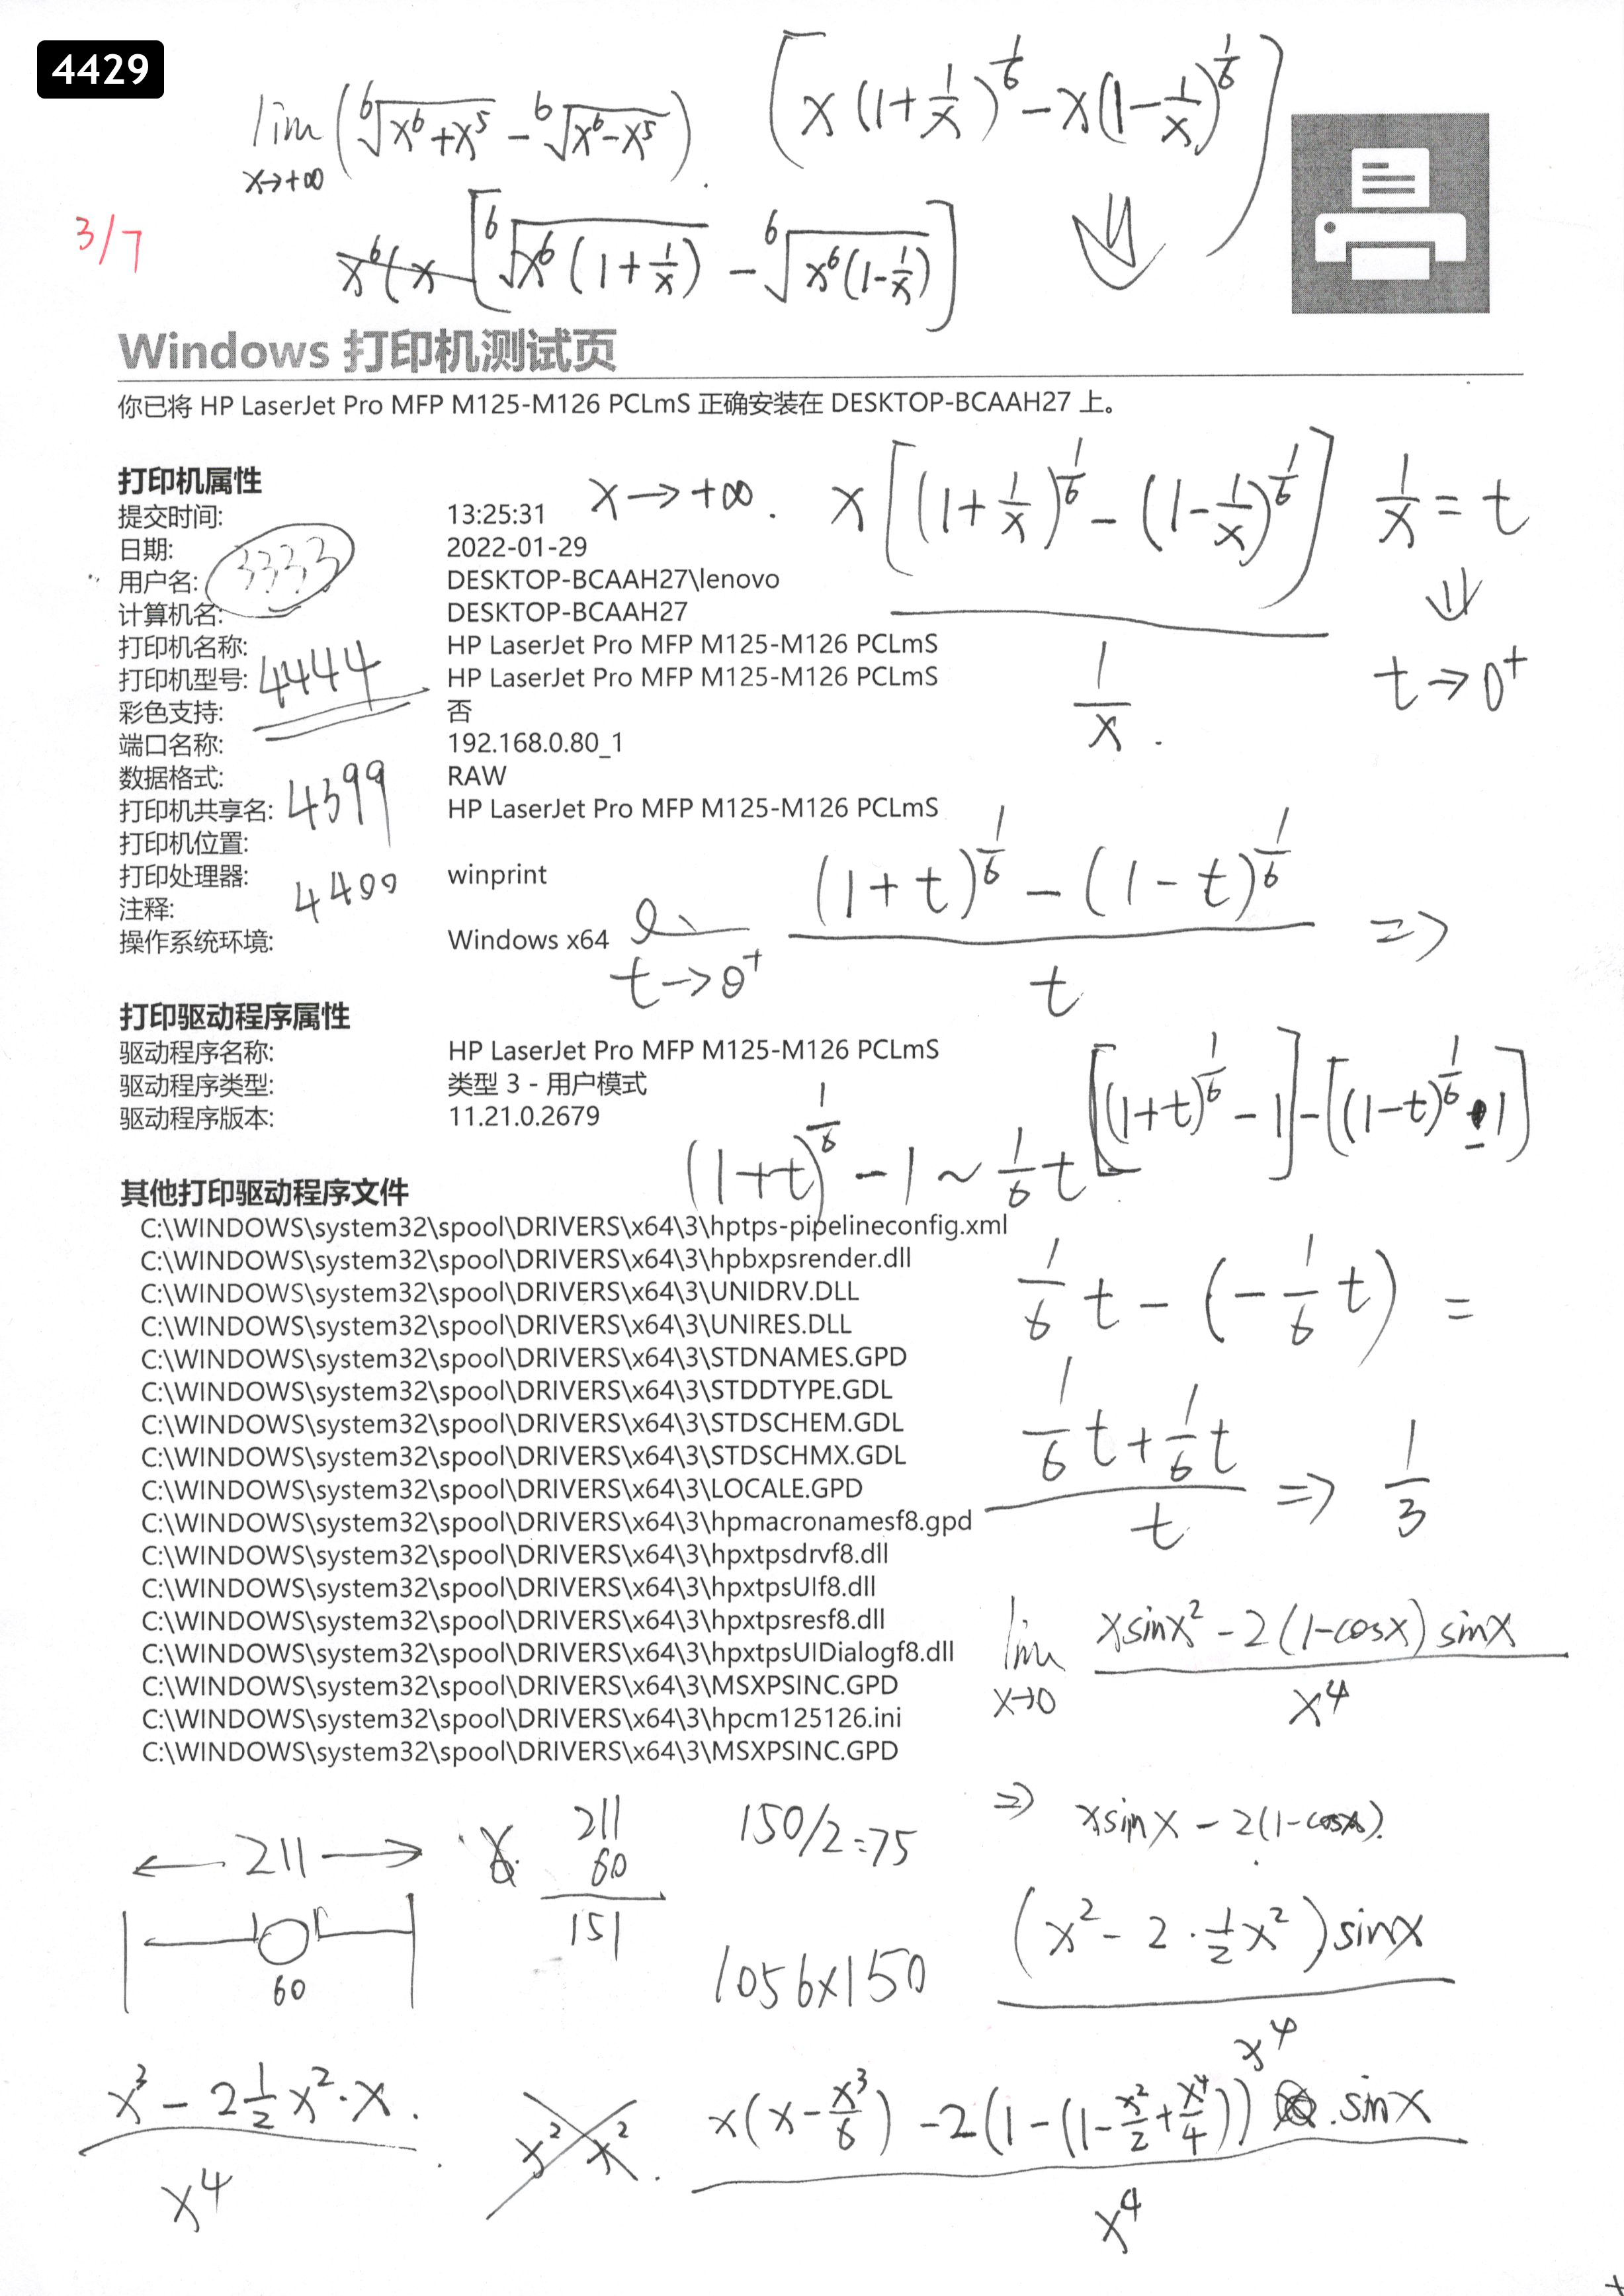 4429
lim (⁶√(x⁶+x⁵) - ⁶√(x⁶-x⁵)). [x(1+1/x)^(1/6) - x(1-1/x)^(1/6)]
x→+∞
3/7
x⁶(x [⁶√(x⁶(1+1/x)) - ⁶√(x⁶(1-1/x))] ⇓
Windows 打印机测试页
你已将 HP LaserJet Pro MFP M125-M126 PCLmS 正确安装在 DESKTOP-BCAAH27 上。
打印机属性
提交时间: 13:25:31
日期: 2022-01-29
用户名: DESKTOP-BCAAH27\lenovo
计算机名: DESKTOP-BCAAH27
打印机名称: HP LaserJet Pro MFP M125-M126 PCLmS
打印机型号: HP LaserJet Pro MFP M125-M126 PCLmS
彩色支持: 否
端口名称: 192.168.0.80_1
数据格式: RAW
打印机共享名: HP LaserJet Pro MFP M125-M126 PCLmS
打印机位置:
打印处理器: winprint
注释:
操作系统环境: Windows x64
3333
4444
4399
4400
x→+∞. x[(1+1/x)^(1/6) - (1-1/x)^(1/6)] 1/x = t
⇓
1/x. t→0⁺
(1+t)^(1/6) - (1-t)^(1/6) ⇒
t→0⁺ t
打印驱动程序属性
驱动程序名称: HP LaserJet Pro MFP M125-M126 PCLmS
驱动程序类型: 类型 3 - 用户模式
驱动程序版本: 11.21.0.2679
[(1+t)^(1/6) - 1] - [(1-t)^(1/6) - 1]
(1+t)^(1/6) - 1 ~ 1/6 t
其他打印驱动程序文件
C:\WINDOWS\system32\spool\DRIVERS\x64\3\hptps-pipelineconfig.xml
C:\WINDOWS\system32\spool\DRIVERS\x64\3\hpbxpsrender.dll
C:\WINDOWS\system32\spool\DRIVERS\x64\3\UNIDRV.DLL
C:\WINDOWS\system32\spool\DRIVERS\x64\3\UNIRES.DLL
C:\WINDOWS\system32\spool\DRIVERS\x64\3\STDNAMES.GPD
C:\WINDOWS\system32\spool\DRIVERS\x64\3\STDDTYPE.GDL
C:\WINDOWS\system32\spool\DRIVERS\x64\3\STDSCHEM.GDL
C:\WINDOWS\system32\spool\DRIVERS\x64\3\STDSCHMX.GDL
C:\WINDOWS\system32\spool\DRIVERS\x64\3\LOCALE.GPD
C:\WINDOWS\system32\spool\DRIVERS\x64\3\hpmacronamesf8.gpd
C:\WINDOWS\system32\spool\DRIVERS\x64\3\hpxtpsdrvf8.dll
C:\WINDOWS\system32\spool\DRIVERS\x64\3\hpxtpsUIf8.dll
C:\WINDOWS\system32\spool\DRIVERS\x64\3\hpxtpsresf8.dll
C:\WINDOWS\system32\spool\DRIVERS\x64\3\hpxtpsUIDialogf8.dll
C:\WINDOWS\system32\spool\DRIVERS\x64\3\MSXPSINC.GPD
C:\WINDOWS\system32\spool\DRIVERS\x64\3\hpcm125126.ini
C:\WINDOWS\system32\spool\DRIVERS\x64\3\MSXPSINC.GPD
1/6 t - (-1/6 t) =
1/6 t + 1/6 t
t ⇒ 1/3
lim xsinx² - 2(1-cosx)sinx
x→0 x⁴
⇒ xsinx - 2(1-cosx).
(x² - 2·1/2 x²)sinx
x⁴
← 211 →
60
211
60
151
150/2=75
1056x150
x³ - 2 1/2 x²·x.
x⁴
x² x².
x(x - x³/6) - 2(1-(1-x²/2+x⁴/4)).sinx
x⁴